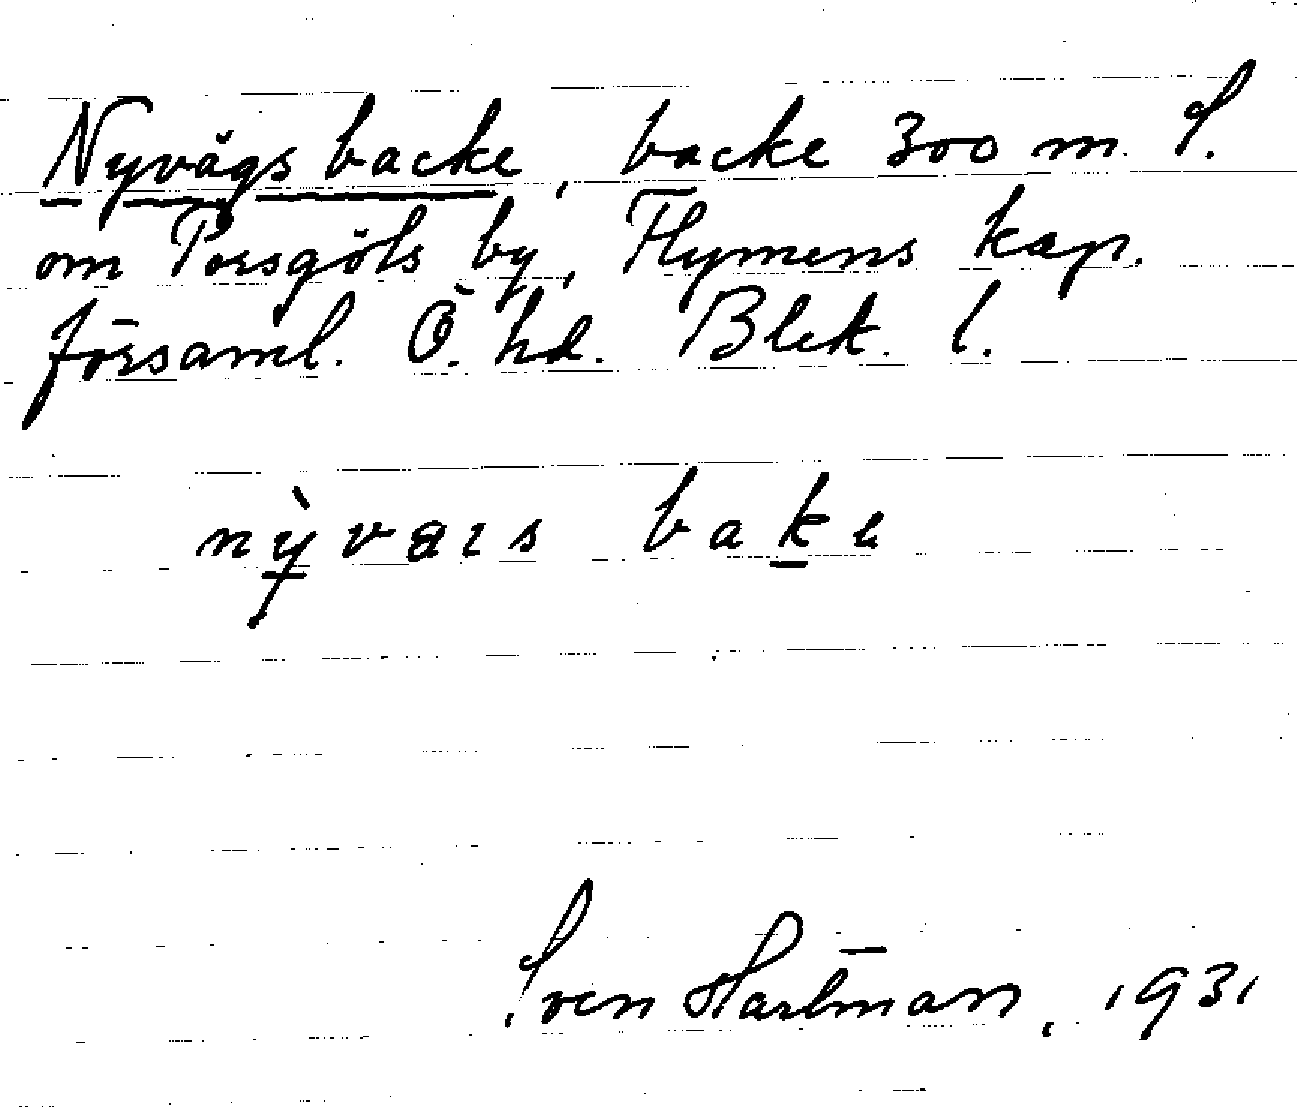 Nyvägs backe, backe 300 m. S.
om Porsgöls by, Flymens kap.
församl. Ö. hd. Blek. l.
nỳvais bake
Sven Hartman, 1931